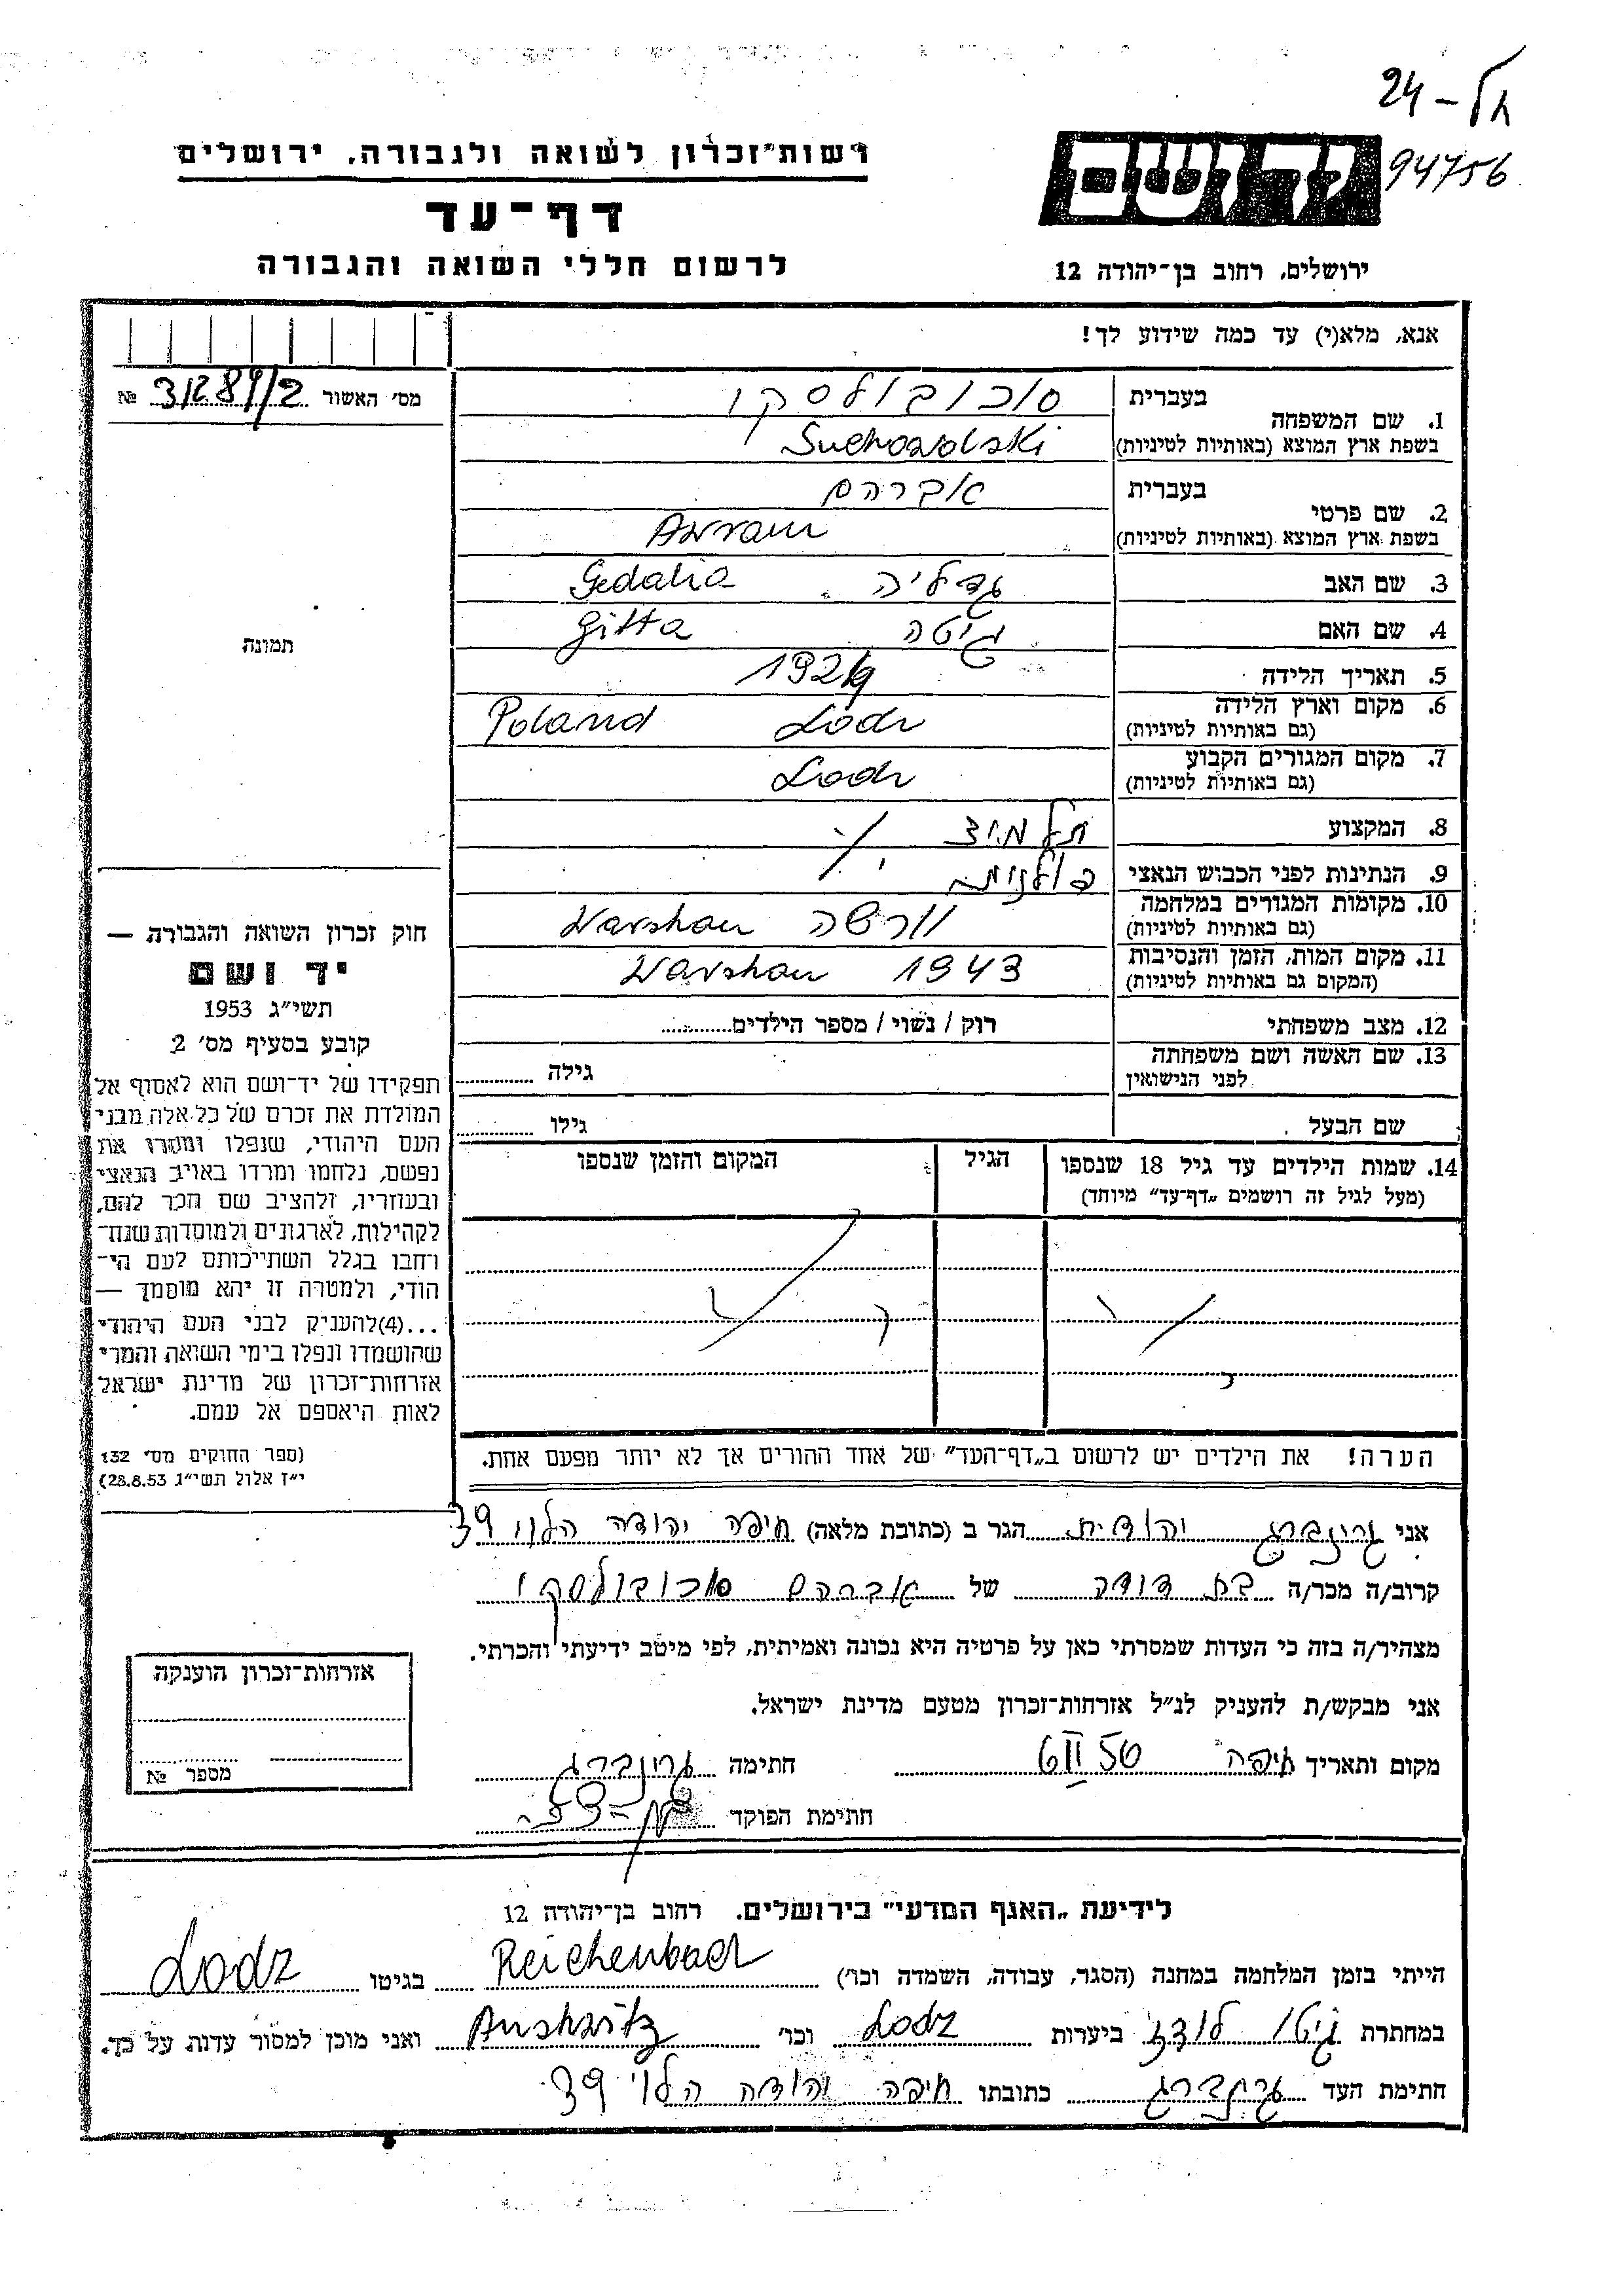 24 - חל
94756
יד ושם
רשות־זכרון לשואה ולגבורה, ירושלים
דף־עד
לרשום חללי השואה והגבורה
ירושלים, רחוב בן־יהודה 12
אנא, מלא(י) עד כמה שידוע לך!
מס׳ האשור № 31289/2
תמונה
1. שם המשפחה
בעברית סוכובולסקי
בשפת ארץ המוצא (באותיות לטיניות) Suchowolski
2. שם פרטי
בעברית אברהם
בשפת ארץ המוצא (באותיות לטיניות) Avram
3. שם האב גדליה Gedalia
4. שם האם גיטה Gitta
5. תאריך הלידה
6. מקום וארץ הלידה Lodz Poland
(גם באותיות לטיניות)
7. מקום המגורים הקבוע Lodz
(גם באותיות לטיניות)
8. המקצוע תלמיד
9. הנתינות לפני הכבוש הנאצי פולנית
10. מקומות המגורים במלחמה וורשה Warshau
(גם באותיות לטיניות)
11. מקום המות, הזמן והנסיבות 1943 Warshau
(המקום גם באותיות לטיניות)
12. מצב משפחתי רוק / נשוי / מספר הילדים
13. שם האשה ושם משפחתה גילה
לפני הנישואין
שם הבעל גילו
14. שמות הילדים עד גיל 18 שנספו
(מעל לגיל זה רושמים „דף־עד” מיוחד)
הגיל
המקום והזמן שנספו
הערה! את הילדים יש לרשום ב„דף־העד” של אחד ההורים אך לא יותר מפעם אחת.
חוק זכרון השואה והגבורה —
יד ושם
תשי״ג 1953
קובע בסעיף מס׳ 2
תפקידו של יד־ושם הוא לאסוף אל
המולדת את זכרם של כל אלה מבני
העם היהודי, שנפלו ומסרו את
נפשם, נלחמו ומרדו באויב הנאצי
ובעוזריו, ולהציב שם וזכר להם,
לקהילות, לארגונים ולמוסדות שנח־
רבו בגלל השתייכותם לעם הי־
הודי, ולמטרה זו יהא מוסמך —
...(4) להעניק לבני העם היהודי
שהושמדו ונפלו בימי השואה והמרי
אזרחות־זכרון של מדינת ישראל
לאות היאספם אל עמם.
(ספר החוקים מס׳ 132
י״ז אלול תשי״ג 28.8.53)
אני גרינברג יהודית הגר ב (כתובת מלאה) חיפה יהודה הלוי 39
קרוב/ה מכר/ה בת דודה של אברהם סוכובולסקי
מצהיר/ה בזה כי העדות שמסרתי כאן על פרטיה היא נכונה ואמיתית, לפי מיטב ידיעתי והכרתי.
אני מבקש/ת להעניק לנ״ל אזרחות־זכרון מטעם מדינת ישראל.
מקום ותאריך חיפה 6 II 56 חתימה גרינברג
חתימת הפוקד
אזרחות־זכרון הוענקה
מספר №
לידיעת „האגף המדעי” בירושלים. רחוב בן־יהודה 12
הייתי בזמן המלחמה במחנה (הסגר, עבודה, השמדה וכו׳) Reichenbach בגיטו Lodz
במחתרת גיטו לודז ביערות Lodz וכו׳ Aushwitz ואני מוכן למסור עדות על כך.
חתימת העד גרינברג כתובתו חיפה יהודה הלוי 39